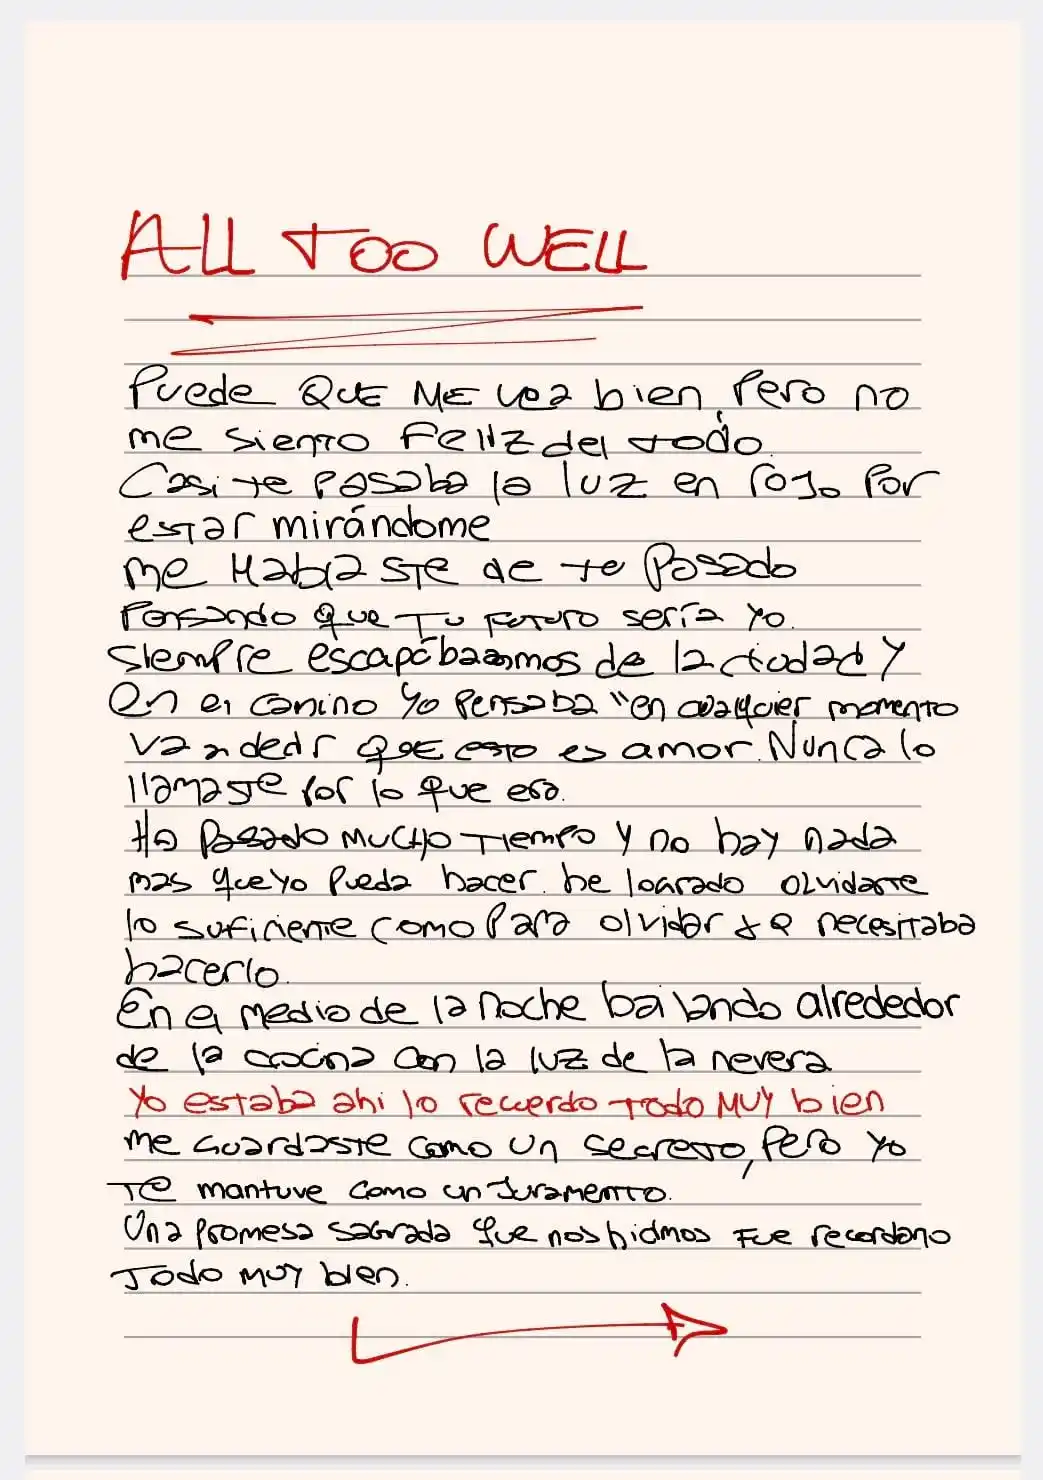 ALL TOO WELL
Puede QUE ME vea bien, Pero no
me siento feliz del todo.
Casi te pasaba la luz en rojo Por
estar mirándome
me Hablaste de te Pasado
Pensando que Tu futuro sería yo.
Siempre escapábaamos de la ciudad y
en el camino yo Pensaba "en cualquier momento
va a decir QUE esto es amor. Nunca lo
llamaste por lo que era.
Ha Pasado MUCHO TIEMPO y no hay nada
mas que yo Pueda hacer. he logrado olvidarte
lo suficiente como Para olvidar xq necesitaba
hacerlo.
En el medio de la noche bailando alrededor
de la cocina con la luz de la nevera
Yo estaba ahi lo recuerdo todo MUY bien
me Guardaste como un secreto, Pero yo
TE mantuve como un Juramento.
Una promesa sagrada que nos hicimos Fue recordarlo
Todo MUY bien.